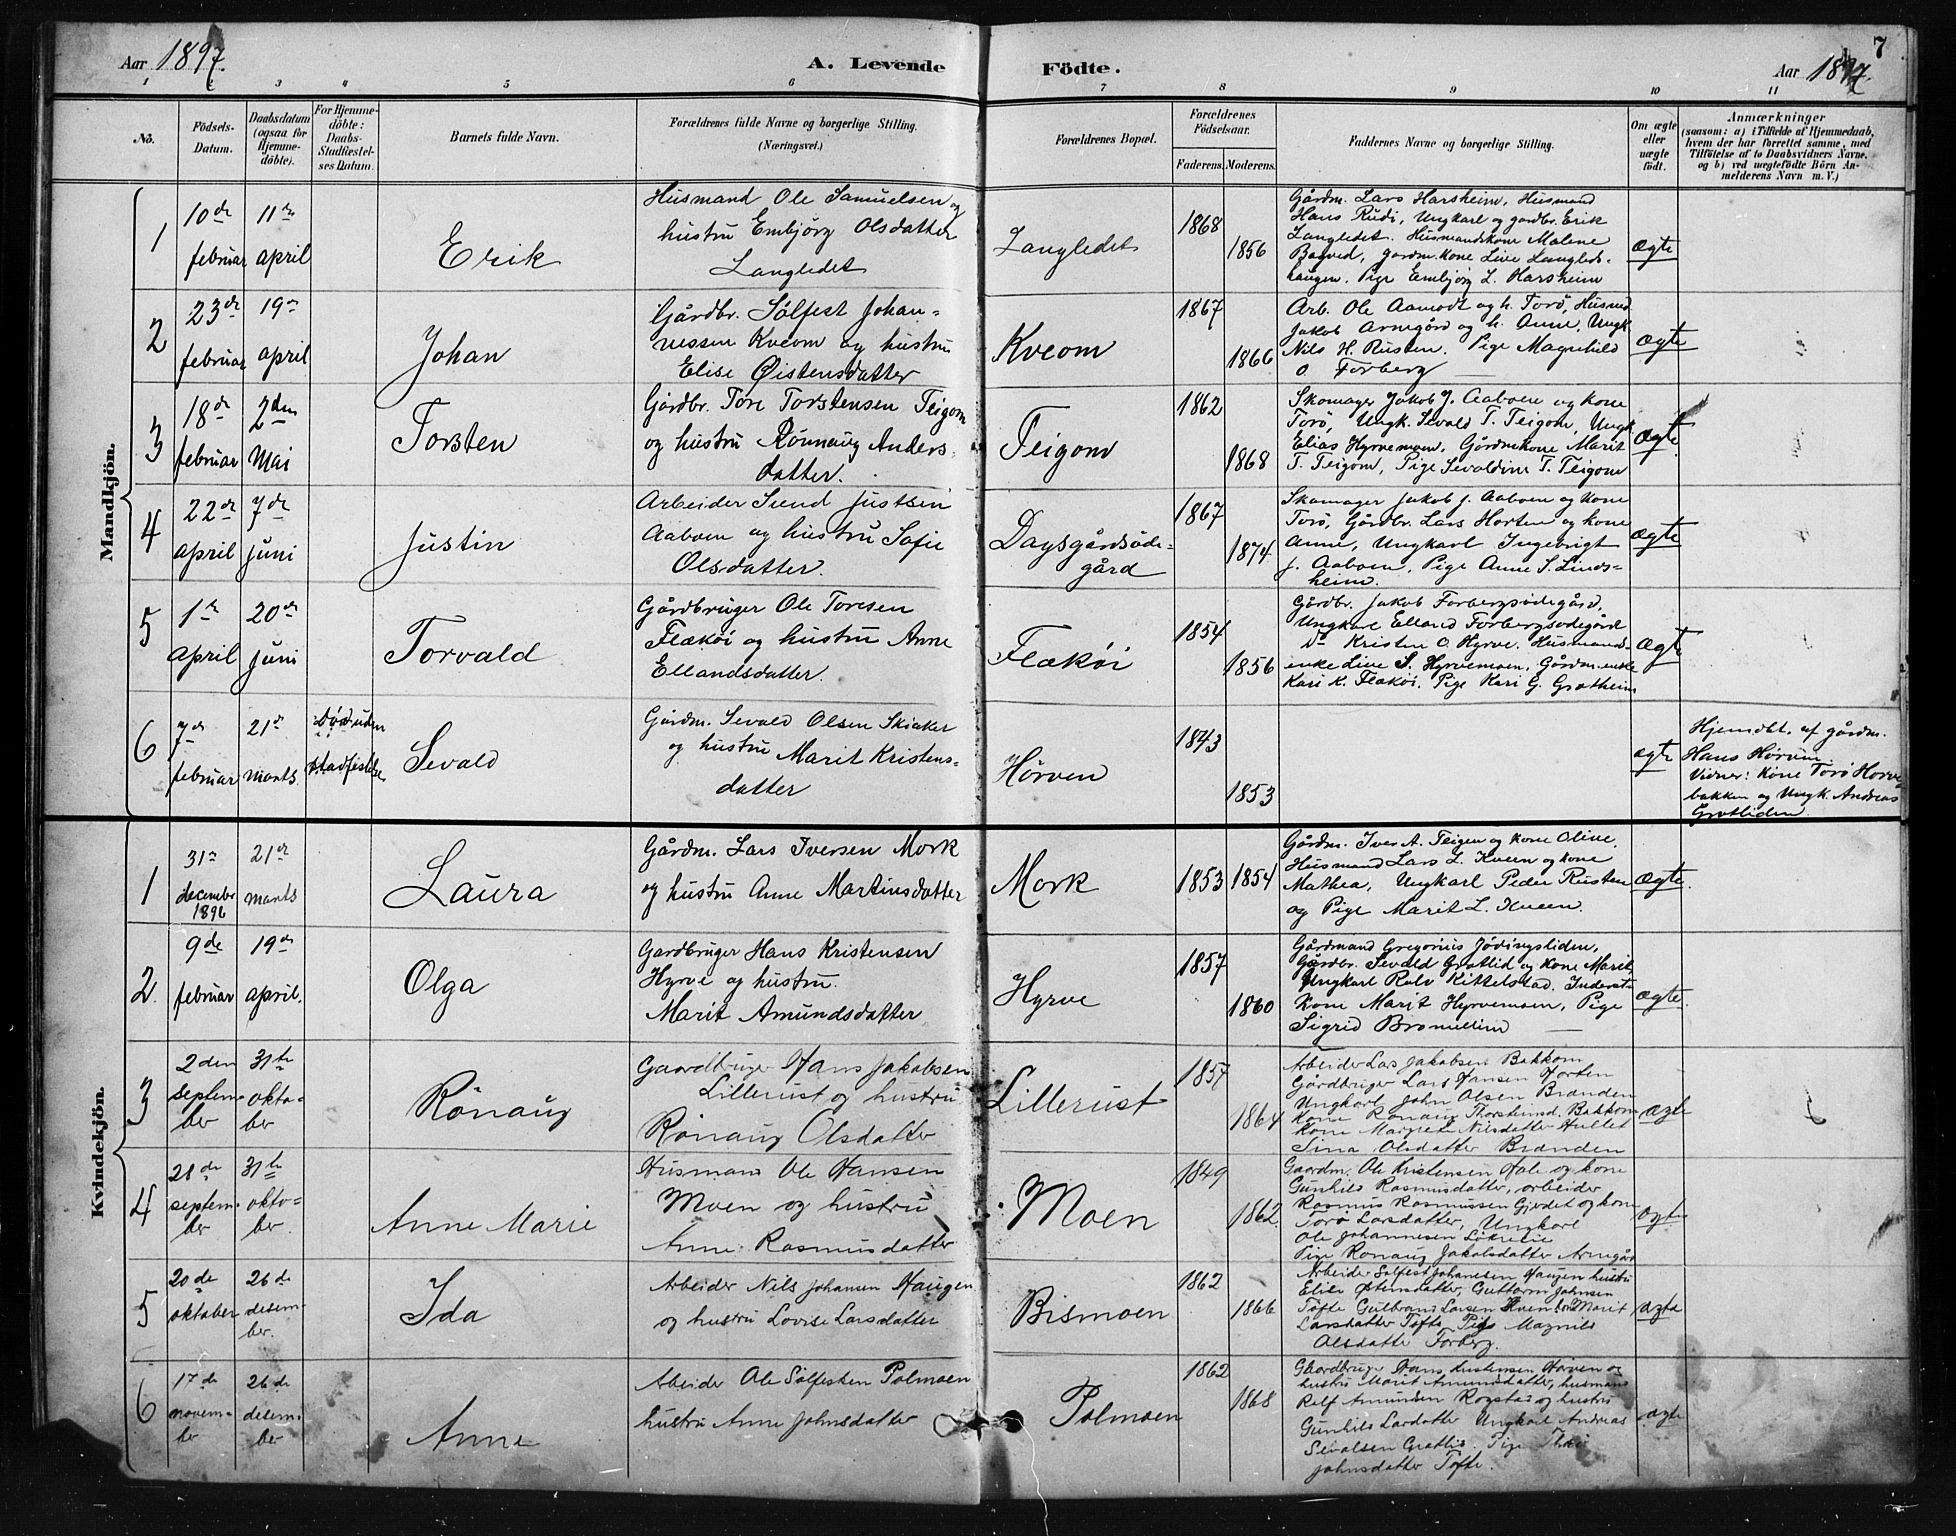 Aar 1897.
A. Levende
Födte.
7
Aar 1897.
1 2 3 4 5 6 7 8 9 10 11
No.
Födsels-
Datum.
Daabsdatum
(ogsaa for
Hjemme-
döbte).
For Hjemme-
döbte:
Daabs-
Stadfæstel-
ses Datum.
Barnets fulde Navn.
Forældrenes fulde Navne og borgerlige Stilling.
(Næringsvei.)
Forældrenes Bopæl.
Forældrenes
Födselsaar.
Faderens.
Moderens.
Faddernes Navne og borgerlige Stilling.
Om ægte
eller
uægte
födt.
Anmærkninger
(saasom: a) i Tilfælde af Hjemmedaab,
hvem der har forrettet samme, med
Tilföielse af to Daabsvidners Navne,
og b) ved uægtefödte Börn An-
melderens Navn m. V.)
Mandkjön.
1
10de
februar
11te
april
Erik
Husmand Ole Samuelsen og
hustru Embjörg Olsdatter
Langledet
Langledet
1868
1856
Gårdm. Lars Harsheim, Husmand
Hans Rudi, Ungkarl og gardbr. Erik
Langledet. Husmandskone Malene
Bagved, gardm. kone Live Langleds-
haugen, Pige Embjörg L. Harsheim
ægte
2
23de
februar
19de
april
Johan
Gårdbr. Sølfest Johan-
nessen Kveom og hustru
Elise Øistensdatter
Kveom
1867
1866
Arb. Ole Aamodt og h. Torö, Husmd
Jakob Arnegård og h. Anne, Ungk.
Nils H. Rusten. Pige Magnhild
O. Forberg
ægte
3
18de
februar
2den
Mai
Torsten
Gårdbr. Tore Torstensen Teigom
og hustru Rönnaug Anders-
datter.
Teigom
1862
1868
Skomager Jakob J. Aaboen og kone
Torö, Ungk. Sevald T. Teigom, Ungk
Elias Hyrvemoen, Gårdmkone Marit
T. Teigom, Pige Sevaldine T. Teigom
ægte
4
22de
april
7de
juni
Justin
Arbeider Svend Justsen
Aaboen og hustru Sofie
Olsdatter.
Dagsgårdsöde-
gård
1867
1874
Skomager Jakob J. Aaboen og kone
Torö, Gårdbr. Lars Horten og kone
Anne, Ungkarl Ingebrigt
J. Aaboen, Pige Anne S. Linds-
heim.
ægte
5
1te
april
20de
juni
Torvald
Gårdbruger Ole Toresen
Flækøi og hustru Anne
Ellandsdatter.
Flækøi
1854
1856
Gårdbr. Jakob Forbergsödegård,
Ungkarl Elland Forbergsödegård
Do Kristen O. Hyrve. Husmands-
enke Live S. Hyrvemoen, Gårdm.enke
Kari K. Flækøi, Pige Kari G. Grotheim
ægte
6
7de
februar
21de
marts
död uden
stadfestelse
Sevald
Gårdm. Sevald Olsen Skiaker
og hustru Marit Kristens-
datter
Hörven
1843
1853
ægte
Hjemdbt. af gårdm.
Hans Hörven.
Vidner: Kone Torö Horve-
bakken og Ungk. Andreas
Grotliden
Kvindekjön.
1
31te
decembr
1896
21de
marts
Laura
Gårdm. Lars Iversen Mork
og hustru Anne Martinsdatter
Mork
1853
1854
Gårdm. Iver A. Teigen og kone Oline,
Husmand Lars L. Kveen og kone
Mathea, Ungkarl Peder Rusten
og Pige Marit L. Kveen.
ægte.
2.
9de
februar
19de
april.
Olga
Gardbruger Hans Kristensen
Hyrve og hustru
Marit Amundsdatter
Hyrve
1857
1860
Gårdmand Gregorius Jödingsliden,
Gårdbr. Sevald Grotlid og kone Marit
Ungkarl Rolv Kittelstad, Inderst-
kone Marit Hyrvemoen, Pige
Sigrid Bromellim
ægte.
3
2den
septem-
ber
31te
okto-
ber
Rönaug
Gaardbruger Hans Jakobsen
Lillerust og hustru
Rönaug Olsdatter
Lillerust
1857
1864
Arbeider Lars Jakobsen Bakkom
Gårdbruger Lars Hansen Horten
Ungkarl John Olsen Brænden
Kone Rönaug Thorstensd. Bakkom
Kone Margrete Nilsdatter Hullet
Sina Olsdatter Brænden
ægte
4
28de
septem-
ber
31te
okto-
ber.
Anne Marie
Husmand Ole Hansen
Moen og hustru
Anne Rasmusdatter
Moen
1849
1862.
Gaardm. Ole Kristensen Hole og kone
Gunhild Rasmusdatter, arbeider
Rasmus Rasmussen Gjerdet og kone
Torö Larsdatter, Ungkarl
Ole Johannesen Lökrelie
Pige Rönaug Jakobsdatter Arnegård
ægte
5
20de
oktober
26de
desem-
ber.
Ida
Arbeider Nils Johansen Haugen
og hustru Lovise Larsdatter
Bismoen
1862
1866
Arbeider Sølfest Johansen Haugen hustru
Elise Østensdatter, Guttorm Johnsen
Tofte Gulbrand Larsen Kven kone Marit
Larsdatter Tofte Pige Magnild
Olsdatte Forberg.
ægte
6
17de
novem-
ber
26de
desem-
ber
Anne
Abeider Ole Solfesten Polmoen
hustru Anne Johnsdatter
Polmoen
1862
1868
Gaardbruger Hans Kristensen Hörven og
hustru Marit Amundsdatter, husmand
Rolf Amundsen Rogstad og hustru
Gunhild Larsdatter Ungkarl Andreas
Sevalsen Grotlid. Pige Thea
Johnsdatter Tofte.
ægte